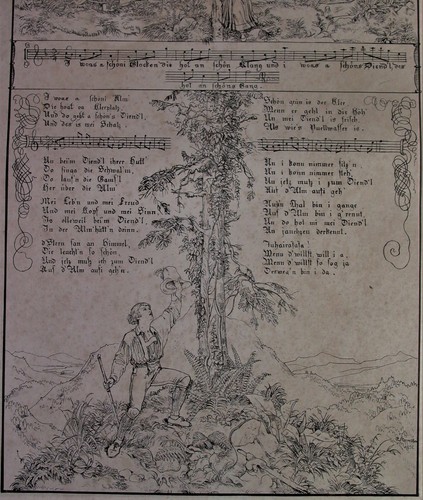 I woas a schöni Glocken die hot an schön Klang und i woas a schöns Diend'l, dis
hot an schöns Gang.
I woas a schöni Alm
Die hout an
Und do geht a schön's Diend'l,
Und das is mei Schatz.
Nu bei'm Diend'l ihrer Hütt'
Do singa die Schwalm,
Do lauf'n die Gams'l
Her über die Alm'
Mei Leb'n und mei Freud
Und mei Kopf und mei Sinn
Is olleweil bei'm Diend'l,
In der Alm'hütt'n drinn.
d'Stern san an Himmel,
Die leucht'n so schön,
Und jetz muß ich zum Diend'l
Auf d'Alm aufi geh'n.
Schön grün is der Klee
Wenn er geht in die Höh'
Un mei Diend'l is frisch,
Als wie'n Quellwasser is.
Nu i konn nimmer sitz'n
Nu i konn nimmer steh
Nu jetz muß i zum Diend'l
Auf d'Alm aufi geh'
Auf d'Alm bin i g'rennt
Nu do hot mi mei Diend'l
Wenn d'willst will i a,
Wenn d'willst so sog ja
bin i da.